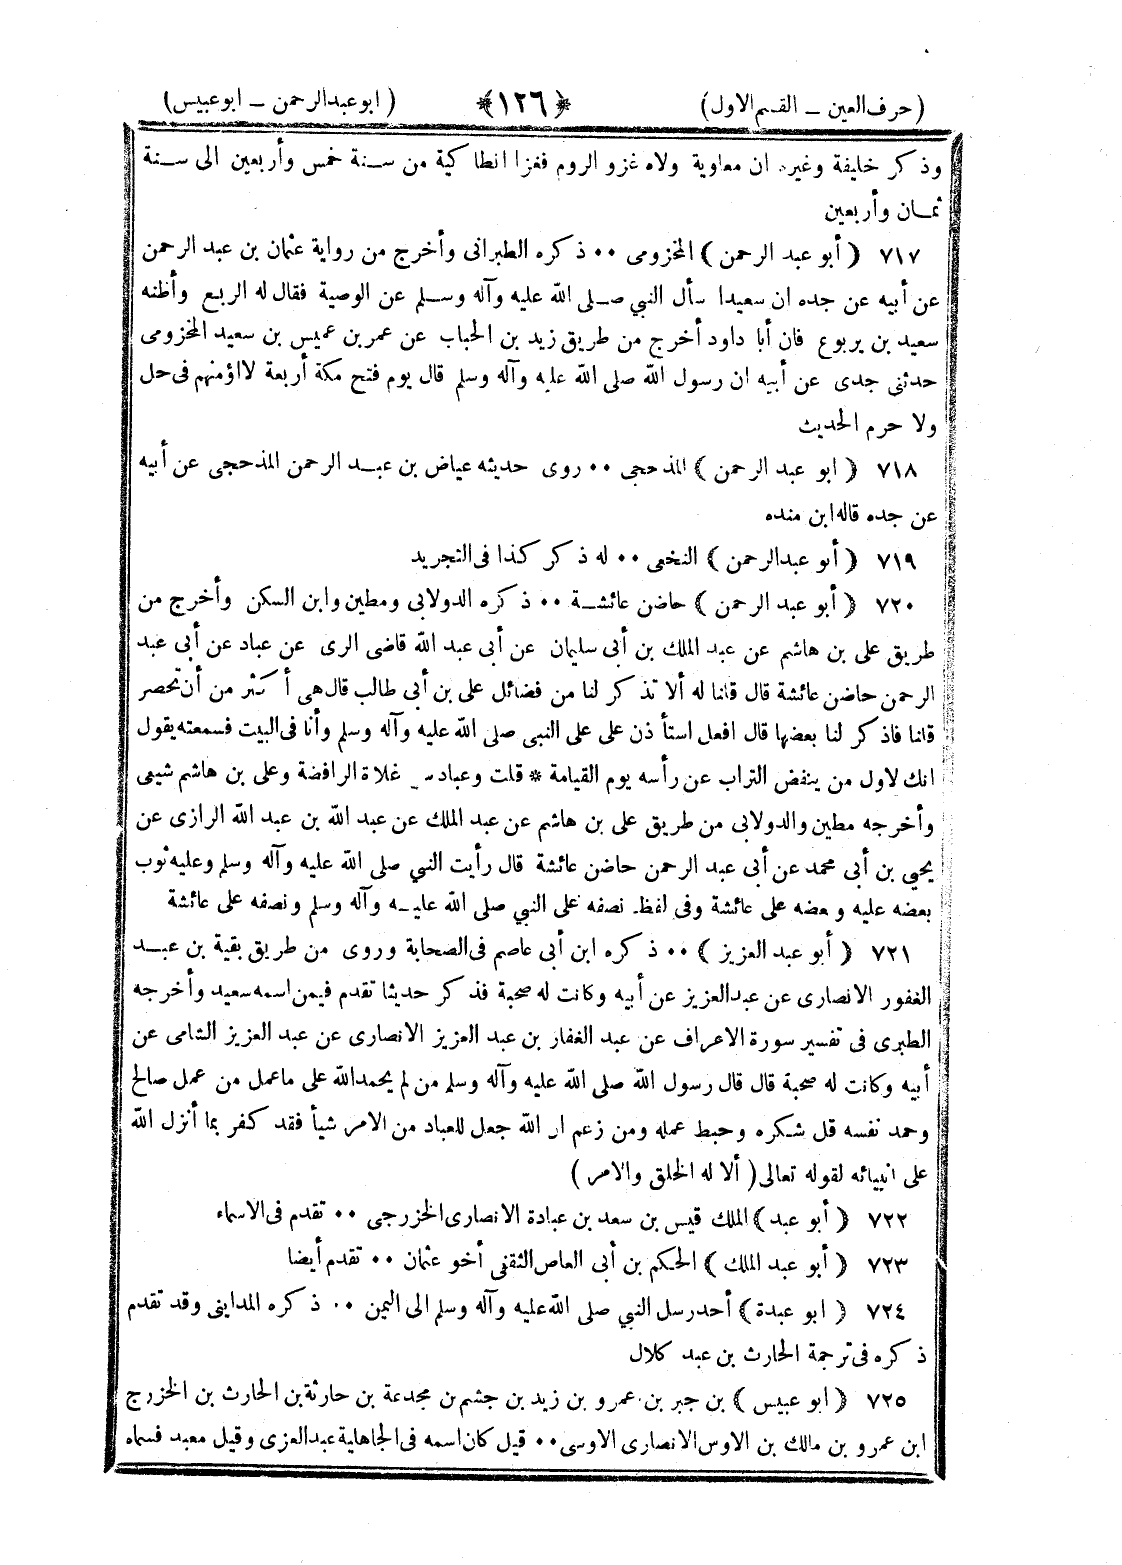 (حرف العين ــ القسم الاول) ﴿١٢٦﴾ (ابو عبد الرحمن ــ ابو عبيس)
وذكر خليفة وغيره ان معاوية ولاه غزو الروم فغزا انطاكية من سنة خمس وأربعين الى سنة
ثمان وأربعين
٧١٧ (أبو عبد الرحمن) المخزومى ٠٠ ذكره الطبرانى وأخرج من رواية عثمان بن عبد الرحمن
عن أبيه عن جده ان سعيدا سأل النبي صلى الله عليه وآله وسلم عن الوصية فقال له الربع وأظنه
سعيد بن يربوع فان أبا داود أخرج من طريق زيد بن الحباب عن عمر بن عميس بن سعيد المخزومى
حدثنى جدى عن أبيه ان رسول الله صلى الله عليه وآله وسلم قال يوم فتح مكة أربعة لا اؤمنهم فى حل
ولا حرم الحديث
٧١٨ (ابو عبد الرحمن) المذحجى ٠٠ روى حديثه عياض بن عبد الرحمن المذحجى عن أبيه
عن جده قاله ابن منده
٧١٩ (أبو عبد الرحمن) النخعى ٠٠ له ذكر كذا فى التجريد
٧٢٠ (أبو عبد الرحمن) حاضن عائشة ٠٠ ذكره الدولابى ومطين وابن السكن وأخرج من
طريق على بن هاشم عن عبد الملك بن أبى سليمان عن أبى عبد الله قاضى الرى عن عباد عن أبى عبد
الرحمن حاضن عائشة قال قلنا له ألا تذكر لنا من فضائل على بن أبى طالب قال هى أكثر من أن تحصر
قلنا فاذكر لنا بعضها قال افعل استأذن على على النبى صلى الله عليه وآله وسلم وأنا فى البيت فسمعته يقول
انك لاول من ينفض التراب عن رأسه يوم القيامة * قلت وعباد من غلاة الرافضة وعلى بن هاشم شيعى
وأخرجه مطين والدولابى من طريق على بن هاشم عن عبد الملك عن عبد الله بن عبد الله الرازى عن
يحيى بن أبى محمد عن أبى عبد الرحمن حاضن عائشة قال رأيت النبي صلى الله عليه وآله وسلم وعليه ثوب
بعضه عليه وبعضه على عائشة وفى لفظ نصفه على النبي صلى الله عليه وآله وسلم ونصفه على عائشة
٧٢١ (أبو عبد العزيز) ٠٠ ذكره ابن أبى عاصم فى الصحابة وروى من طريق بقية بن عبد
الغفور الانصارى عن عبد العزيز عن أبيه وكانت له صحبة فذكر حديثا تقدم فيمن اسمه سعيد وأخرجه
الطبرى فى تفسير سورة الاعراف عن عبد الغفار بن عبد العزيز الانصارى عن عبد العزيز الشامى عن
أبيه وكانت له صحبة قال قال رسول الله صلى الله عليه وآله وسلم من لم يحمد الله على ما عمل من عمل صالح
وحمد نفسه قل شكره وحبط عمله ومن زعم ان الله جعل للعباد من الامر شيأ فقد كفر بما أنزل الله
على انبيائه لقوله تعالى (ألا له الخلق والامر)
٧٢٢ (أبو عبد) الملك قيس بن سعد بن عبادة الانصارى الخزرجى ٠٠ تقدم فى الاسماء
٧٢٣ (أبو عبد الملك) الحكم بن أبى العاص الثقفى أخو عثمان ٠٠ تقدم أيضا
٧٢٤ (ابو عبدة) أحد رسل النبي صلى الله عليه وآله وسلم الى اليمن ٠٠ ذكره المداينى وقد تقدم
ذكره فى ترجمة الحارث بن عبد كلال
٧٢٥ (ابو عبيس) بن جبر بن عمرو بن زيد بن جشم بن مجدعة بن حارثة بن الحارث بن الخزرج
ابن عمرو بن مالك بن الاوس الانصارى الاوسى ٠٠ قيل كان اسمه فى الجاهلية عبد العزى وقيل معبد فسماه